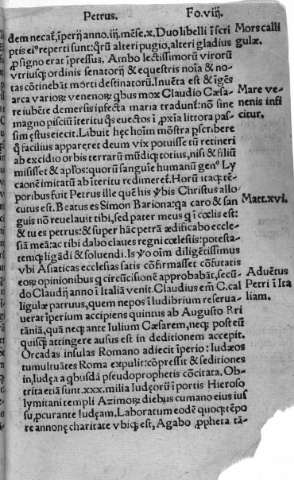 Petrus. Fo.viij.
dem necat, īperij anno .iiij. mēse .x. Duo libelli ī scri
Mors calli
ptis ei⁹ reperti sunt: quorū alteri pugio, alteri gladius
gulæ.
p signo erat īpressus. Ambo lectissimorū virorū
vtriusq; ordinis senatorij & equestris noīa & no-
tas cōtinebāt morti destinatorū. Inuēta est & īgēs
arca varijs venenorū: qbus mox Claudio Cæsa-
Mare ve-
re iubēte demersis infecta maria tradunt: nō sine
nenis infi
magno pisciū īteritu qs euectos ī pxīa littora pas-
citur.
sim ęstus eiecit. Libuit hęc hoīm mōstra pscribere
q facilius appareret deum vix potuisse tū retineri
ab excidio orbis terrarū mūdiq; totius, nisi & filiū
misisset & aplos: quorū sanguīe humanū gen⁹ Ly
caonē imitatū ab īteritu redimeret. Horū itaq; tē
poribus fuit Petrus ille quē his ybis Christus allo-
cutus est. Beatus es Simon Bariona: qa caro & san
Matt. xvi.
guis nō reuelauit tibi, sed pater meus q ī cœlis est:
& tu es petrus: & super hāc petrā ædificabo eccle-
siā meā: ac tibi dabo claues regni cœlestis: potesta-
temq; ligādi & soluendi. Is yo oīm diligētissimus
vbi Asiaticas ecclesias satis cōfirmasset cōfutatis
eorū opinionibus q circūcisionē approbabāt, secū-
Aduētus
do Claudij anno ī Italiā venit. Claudius em̄ C. cal
Petri ī Ita
ligulæ patruus, quem nepos ī ludibrium reserua-
liam.
uerat īperium accipiens quintus ab Augusto Bri
tāniā, quā neq; ante Iulium Cæsarem, neq; post eū
quisq̄ attingere ausus est in deditionem accepit.
Orcadas insulas Romano adiecit īperio: Iudæos
tumultuātes Roma expulit: cōpressit & seditiones
in Iudęa a qbusdā pseudoprophetis cōcitata, Ob-
trita etiā sunt .xxx. milia Iudęorū ī portis Hieroso
lymitani templi Azimorū diebus cumano eius ius
su, pcurante Iudęam, Laboratum eodē quoq; tēpo
re annonę charitate vbiq; est, Agabo ppheta tā-